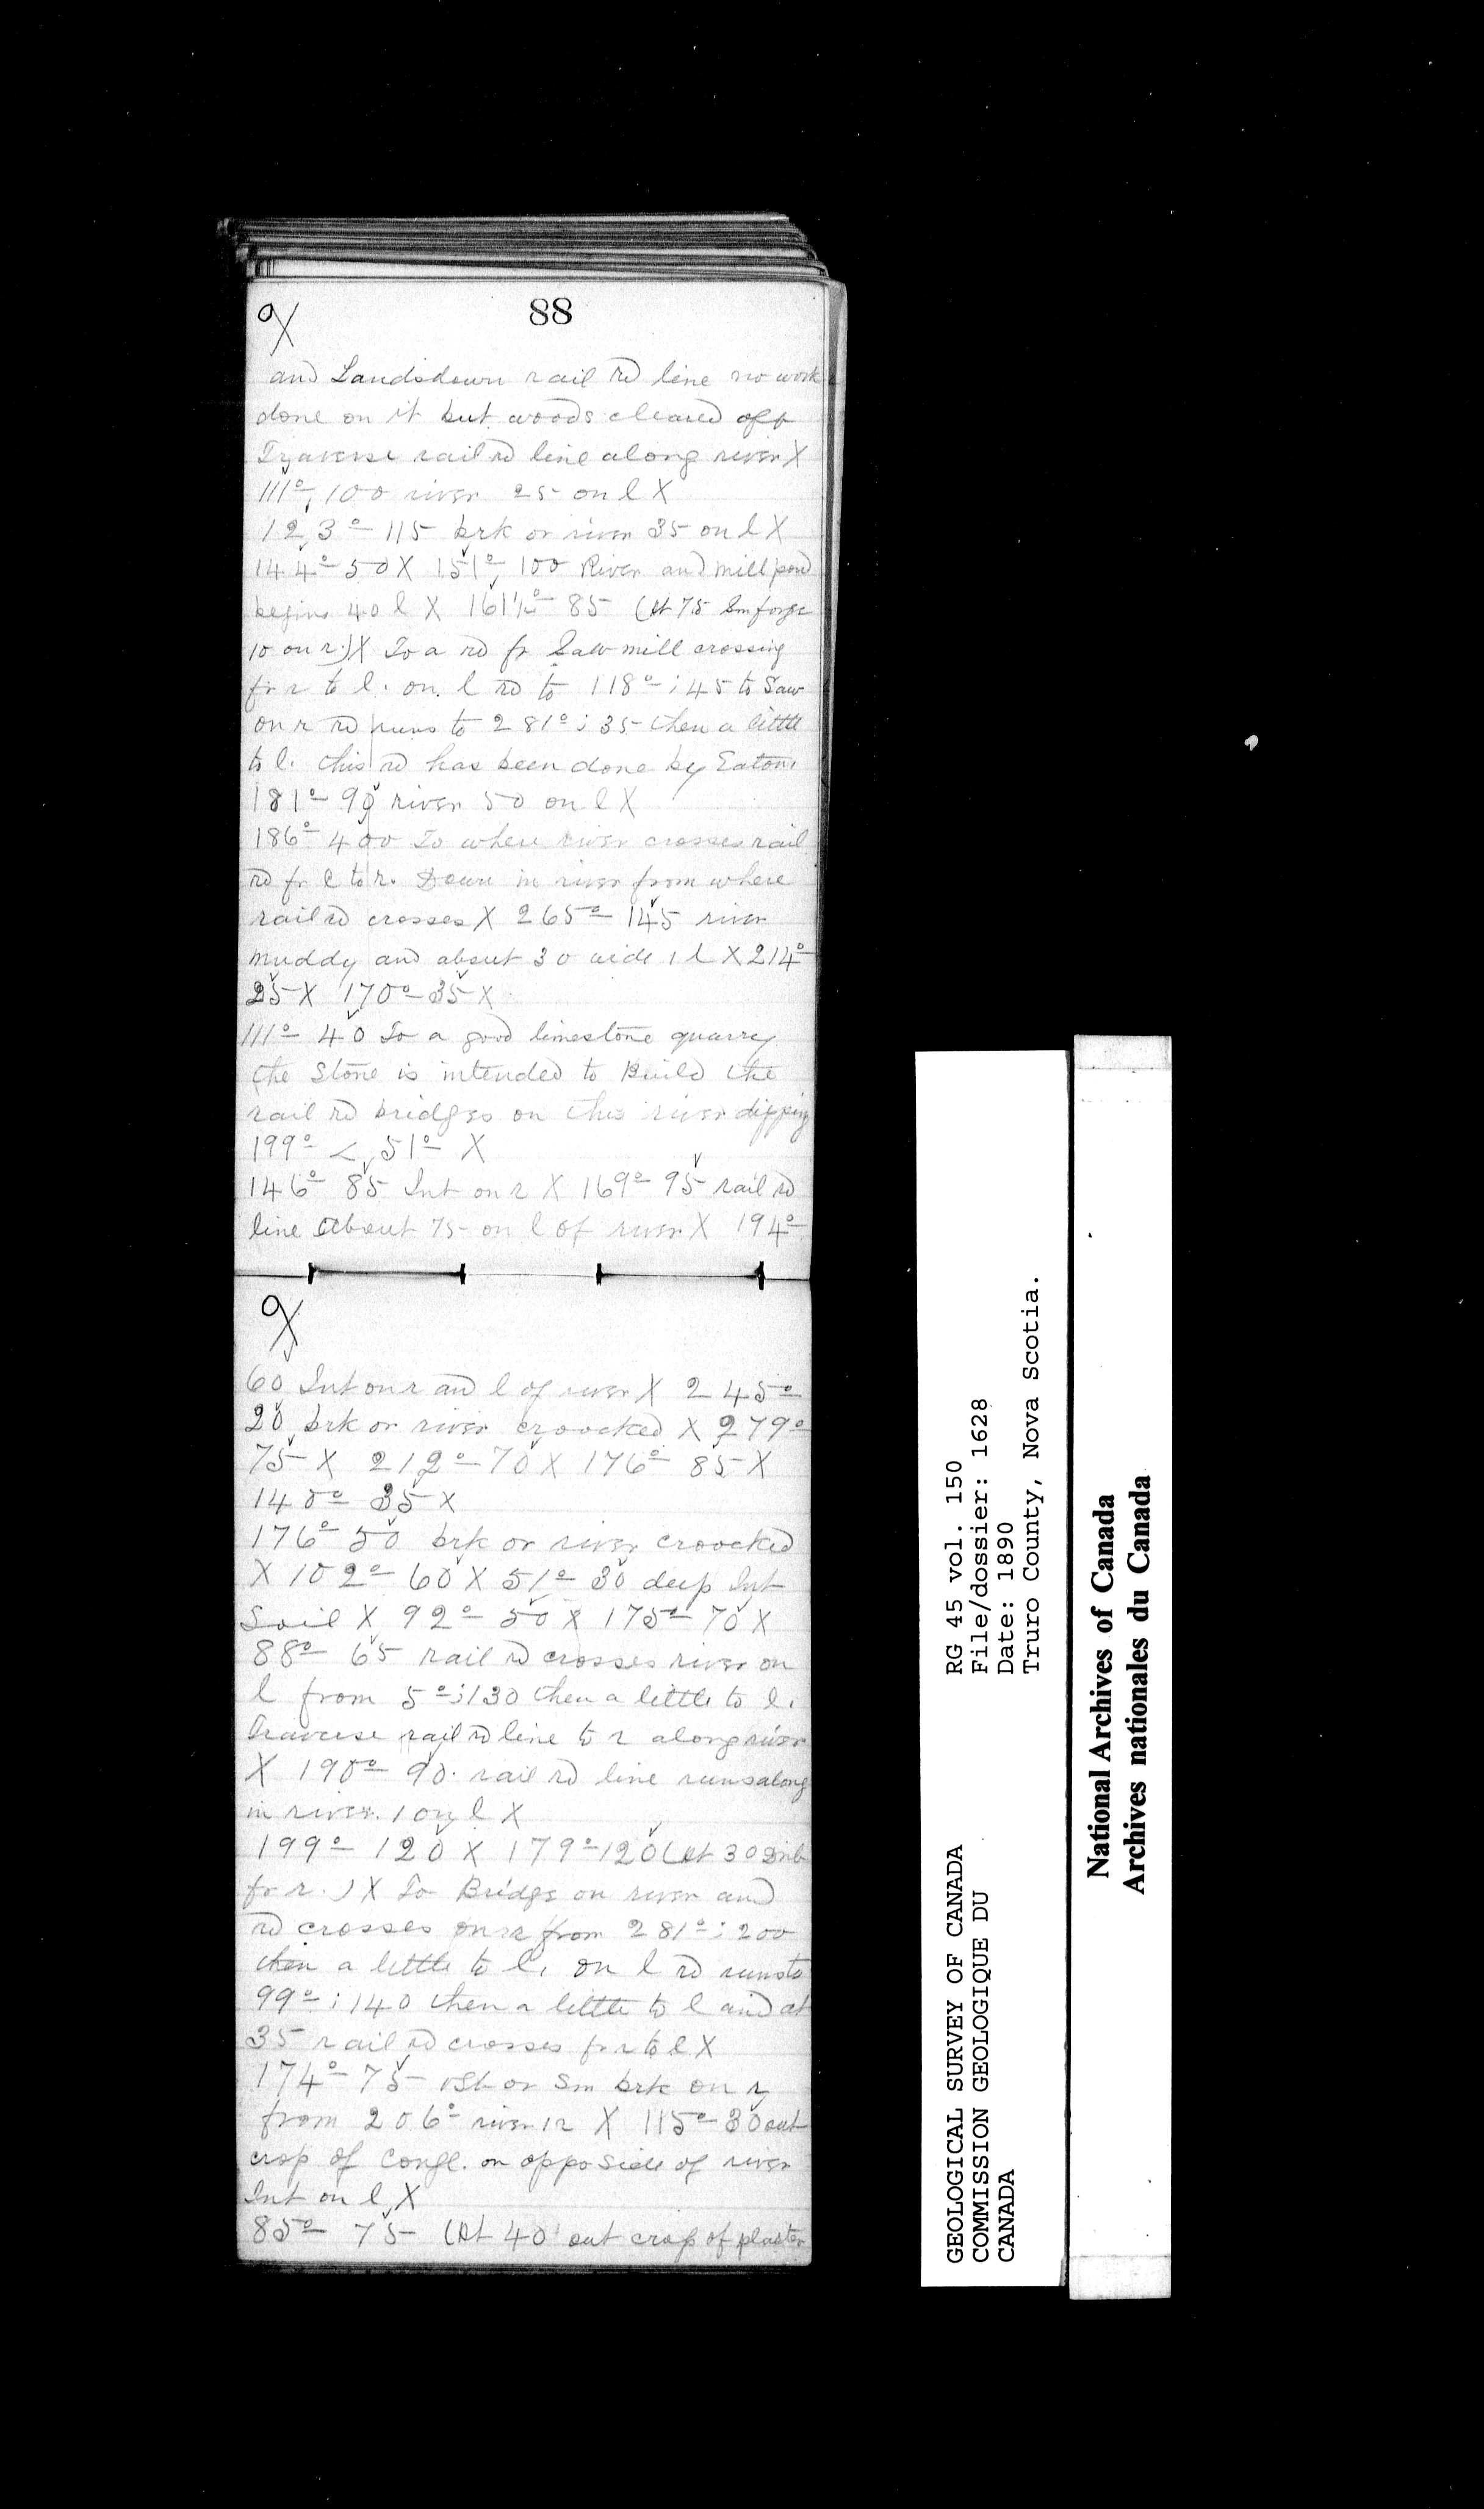 88
and Landsdown rail rd line no work
done on it but woods cleared off
Traverse rail rd line along river X
111° 100 river 25 on l X
123° 115 brk or river 35 on l X
144° 50 X 151° 100 River and mill pond
begins 40 l X 161½° 85 (At 75 Sm forge
10 on r.) X To a rd fr Saw mill crossing
fr r to l. on l rd to 118° ; 45 to Saw
on r rd runs to 281° ; 35 then a little
to l. this rd has been done by Eaton.
181° 90 river 50 on l X
186° 400 To where river crosses rail
rd fr l to r. Down in river from where
rail rd crosses X 265° 145 river
muddy and about 30 wide 1 l X 214°
25 X 170° 35 X
111° 40 To a good limestone quarry
the Stone is intended to Build the
rail rd bridges on this river dipping
199° < 51° X
146° 85 Int on r X 169° 95 rail rd
line About 75 on l of river X 194°
60 Int on r and l of river X 245°
20 brk or river croocked X 279°
75 X 212° 70 X 176° 85 X
140° 35 X
176° 50 brk or river croocked
X 102° 60 X 51° 30 deep Int
Soil X 92° 50 X 175° 70 X
88° 65 rail rd crosses river on
l from 5° ; 130 then a little to l.
Traverse rail rd line to r along river
X 190° 90. rail rd line runs along
in river. 1 on l X
199° 120 X 179° 120 (At 30
fr r.) X To Bridge on river and
rd crosses on r from 281° ; 200
then a little to l. on l rd runs to
99° ; 140 then a little to l and at
35 rail rd crosses fr r to l X
174° 75 vSt or Sm brk on r
from 206° river 1 r X 115° 30 out
crop of Congl. on oppo Side of river
Int on l X
85° 75 (At 40 out crop of plaster
GEOLOGICAL SURVEY OF CANADA
COMMISSION GEOLOGIQUE DU
CANADA
RG 45 vol. 150
File/dossier: 1628
Date: 1890
Truro County, Nova Scotia.
National Archives of Canada
Archives nationales du Canada